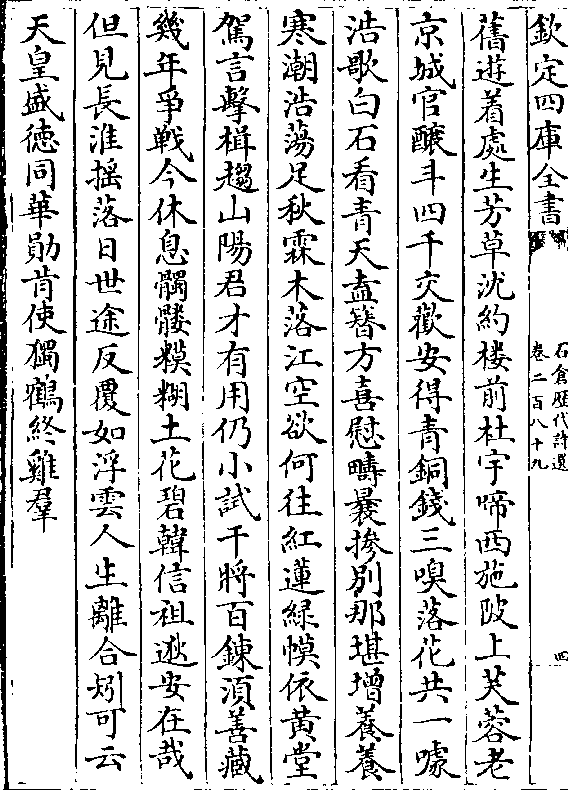 欽定四庫全書
石倉歷代詩選
卷二百八十九
四
舊遊着處生芳草沈約樓前杜宇啼西施陂上芙蓉老
京城官釀斗四千交歡安得青銅錢三嗅落花共一噱
浩歌白石看青天盍簪方喜慰疇曩摻別那堪增養養
寒潮浩蕩足秋霖木落江空欲何往紅蓮緑幙依黃堂
駕言擊楫趨山陽君才有用仍小試干將百鍊湏善藏
幾年爭戰今休息髑髏糢糊土花碧韓信祖逖安在哉
但見長淮揺落日世途反覆如浮雲人生離合矧可云
天皇盛徳同華勛肯使獨鶴終雞羣